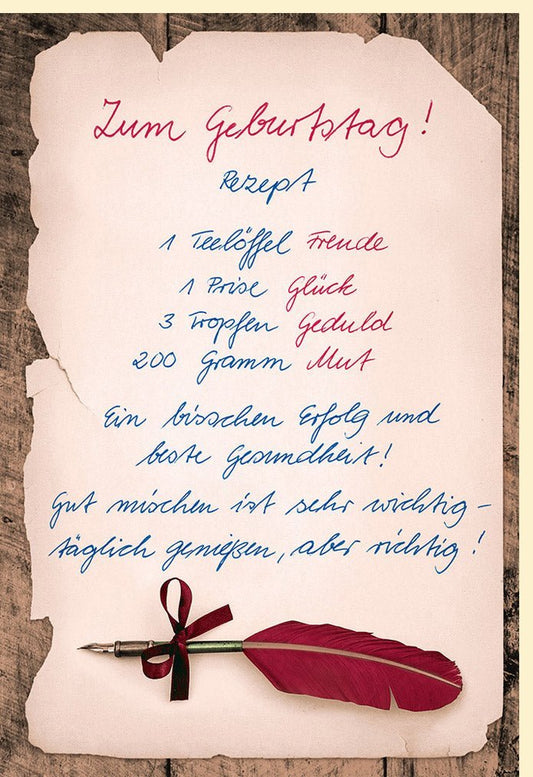 Zum Geburtstag!
Rezept
1 Teelöffel Freude
1 Prise Glück
3 Tropfen Geduld
200 Gramm Mut
Ein bisschen Erfolg und
beste Gesundheit!
Gut mischen ist sehr wichtig –
täglich genießen, aber richtig!